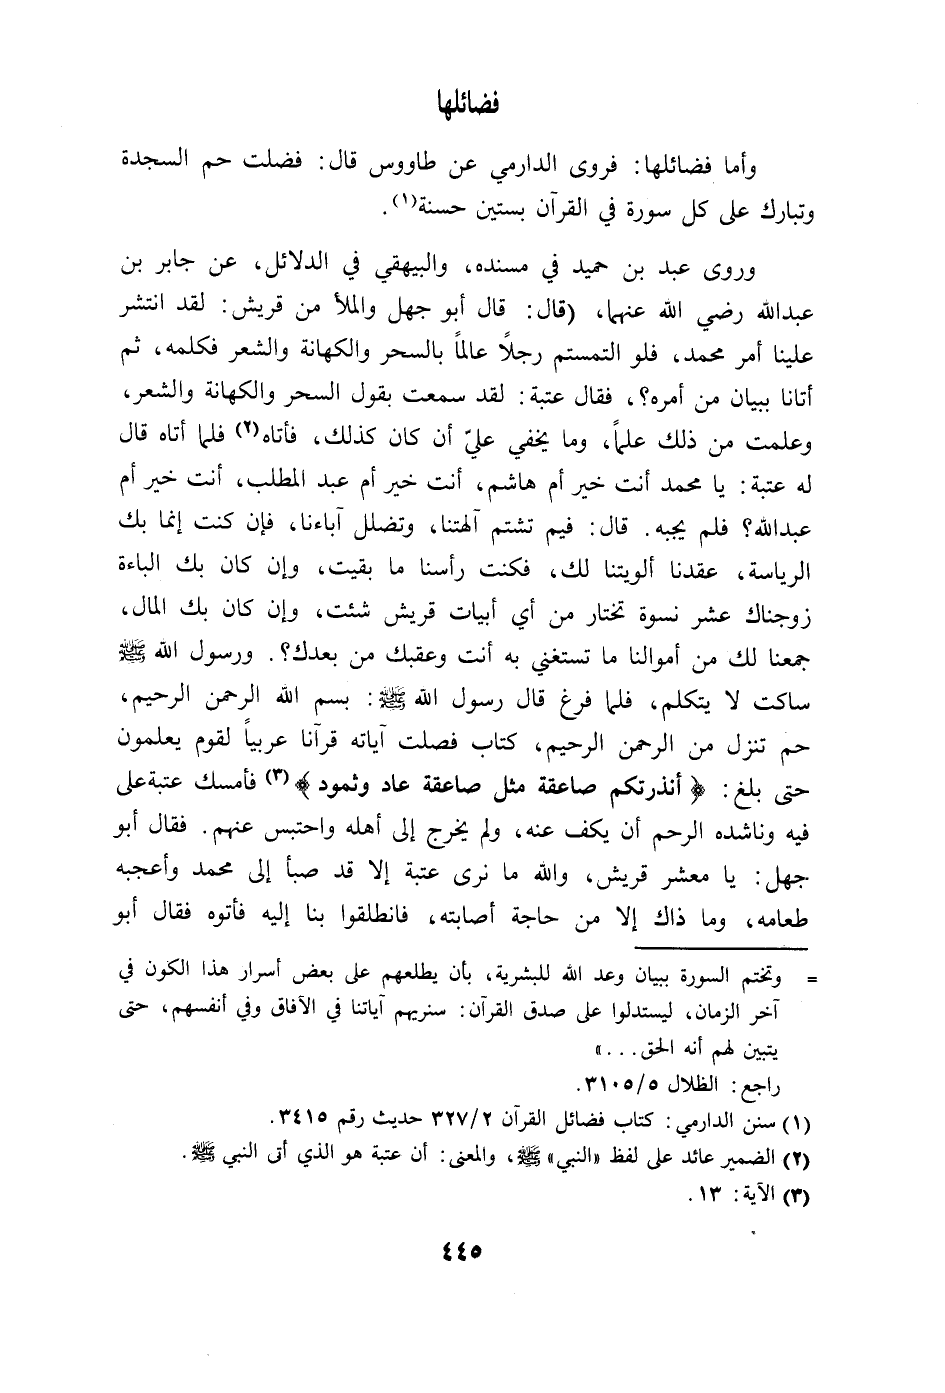 فضائلها
وأما فضائلها: فروى الدارمي عن طاووس قال: فضلت حم السجدة
وتبارك على كل سورة في القرآن بستين حسنة(١).
وروى عبد بن حميد في مسنده، والبيهقي في الدلائل، عن جابر بن
عبدالله رضي الله عنهما، (قال: قال أبو جهل والملأ من قريش: لقد انتشر
علينا أمر محمد، فلو التمستم رجلاً عالماً بالسحر والكهانة والشعر فكلمه، ثم
أتانا ببيان من أمره؟، فقال عتبة: لقد سمعت بقول السحر والكهانة والشعر،
وعلمت من ذلك علماً، وما يخفي عليّ أن كان كذلك، فأتاه(٢) فلما أتاه قال
له عتبة: يا محمد أنت خير أم هاشم، أنت خير أم عبد المطلب، أنت خير أم
عبدالله؟ فلم يجبه. قال: فيم تشتم آلهتنا، وتضلل آباءنا، فإن كنت إنما بك
الرياسة، عقدنا ألويتنا لك، فكنت رأسنا ما بقيت، وإن كان بك الباءة
زوجناك عشر نسوة تختار من أي أبيات قريش شئت، وإن كان بك المال،
جمعنا لك من أموالنا ما تستغني به أنت وعقبك من بعدك؟. ورسول الله ﷺ
ساكت لا يتكلم، فلما فرغ قال رسول الله ﷺ: بسم الله الرحمن الرحيم،
حم تنزل من الرحمن الرحيم، كتاب فصلت آياته قرآنا عربياً لقوم يعلمون
حتى بلغ: ﴿أنذرتكم صاعقة مثل صاعقة عاد وثمود﴾(٣) فأمسك عتبةعلى
فيه وناشده الرحم أن يكف عنه، ولم يخرج إلى أهله واحتبس عنهم. فقال أبو
جهل: يا معشر قريش، والله ما نرى عتبة إلا قد صبأ إلى محمد وأعجبه
طعامه، وما ذاك إلا من حاجة أصابته، فانطلقوا بنا إليه فأتوه فقال أبو
= وتختم السورة ببيان وعد الله للبشرية، بأن يطلعهم على بعض أسرار هذا الكون في
آخر الزمان، ليستدلوا على صدق القرآن: سنريهم آياتنا في الآفاق وفي أنفسهم، حتى
يتبين لهم أنه الحق...»
راجع: الظلال ٣١٠٥/٥.
(١) سنن الدارمي: كتاب فضائل القرآن ٣٢٧/٢ حديث رقم ٣٤١٥.
(٢) الضمير عائد على لفظ «النبي» ﷺ، والمعنى: أن عتبة هو الذي أتى النبي ﷺ.
(٣) الآية: ١٣.
٤٤٥